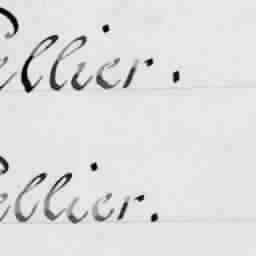 ellier.
ellier.